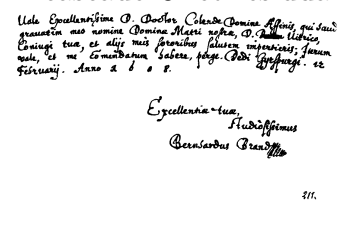 Vale Excellentissime D. Doctor Colende Domine Affinis, qui haud
gravatim meo nomine Dominæ Matri nostræ, D. Vitrico,
Coniugi tuæ, et alijs meis sororibus salutem impertieris; Iterum
vale, et me Comendatum habere, perge. Dedi 12
Februarij. Anno 1608.
Excellentiæ tuæ,
studiosissimus
Bernhardus Brand